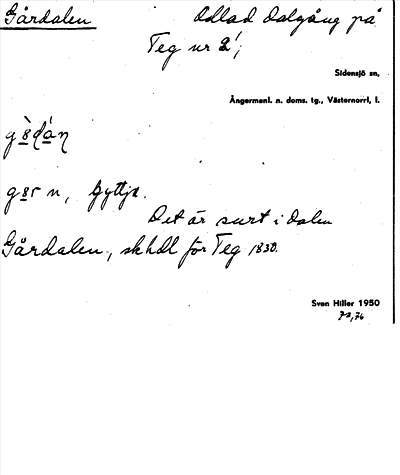 Gårdalen Odlad dalgång på
Teg nr 2¹;
Sidensjö sn,
Ångermanl. n. doms. tg., Västernorrl, l.
n, Gyttja.
Det är surt i dalen
Gårdalen, skhdl för Teg 1830.
Sven Hiller 1950